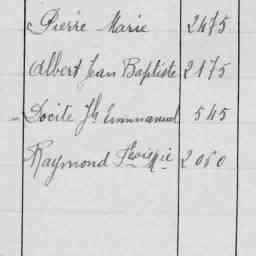 Pierre Marie 2475
Albert Jean Baptiste 2175
Docite Jh Emmanuel 545
Raymond 2050